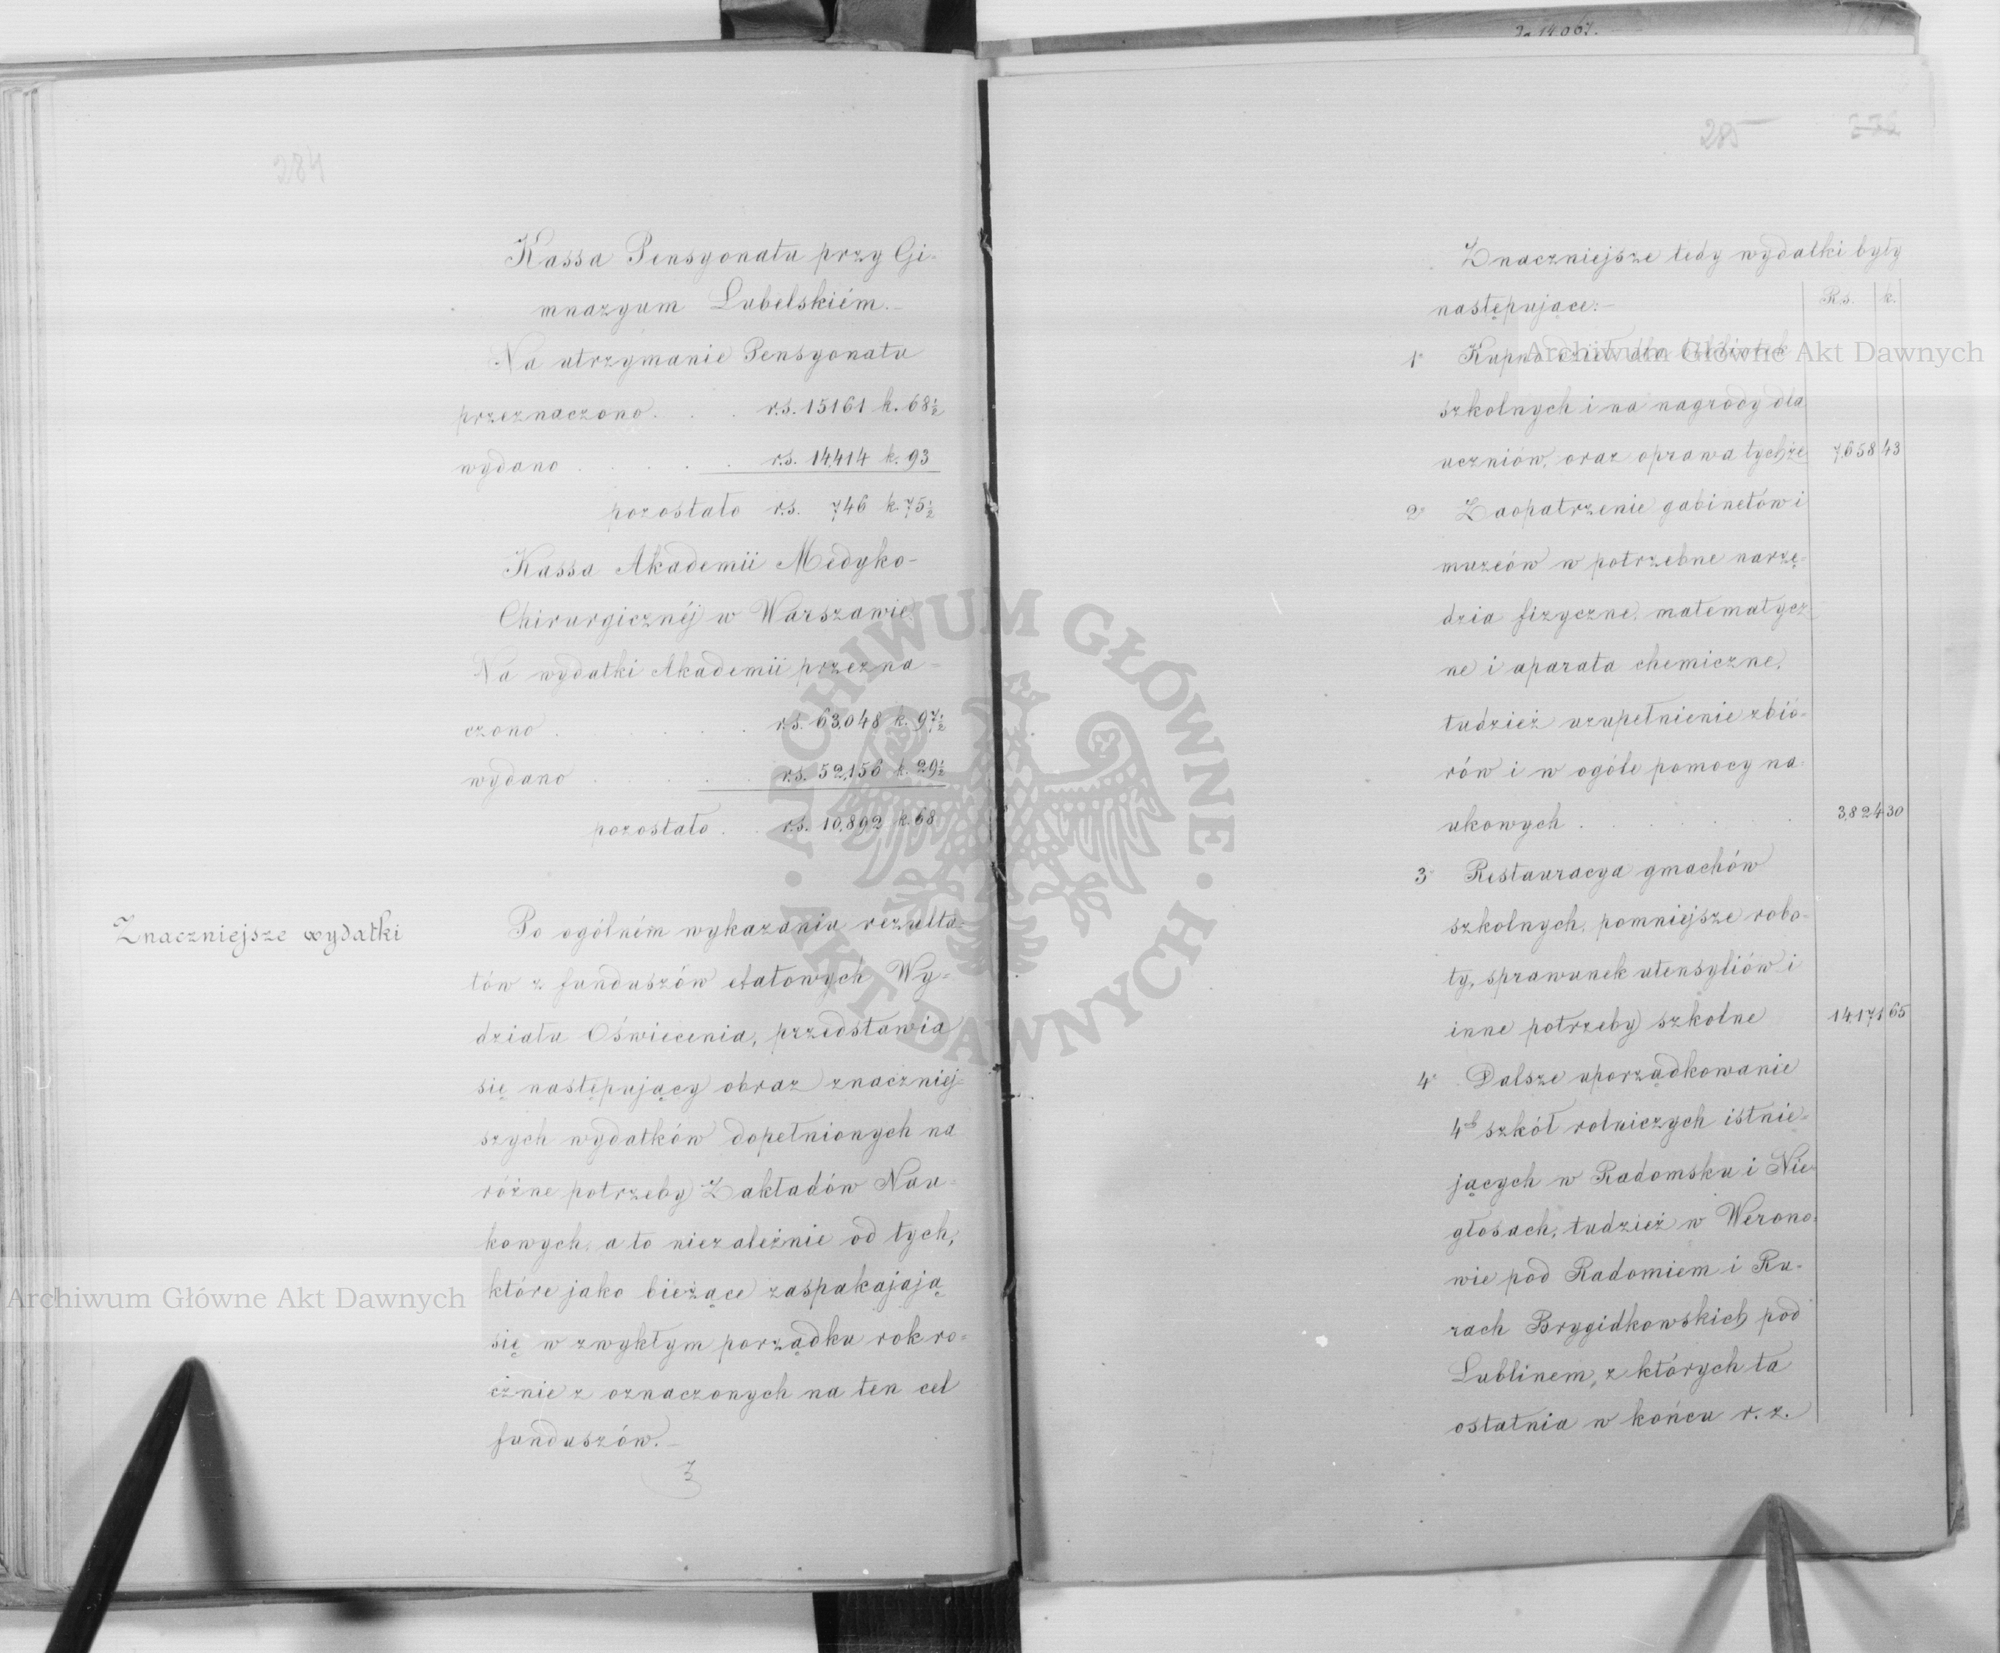 284
Kassa Pensyonatu przy Gi-
mnazyum Lubelskiém.-
Na utrzymanie Pensyonatu
przeznaczono. . . r.s. 15161 k. 68½
wydano . . . . r.s. 14,414 k. 93
pozostało r.s. 746 k. 75½
Kassa Akademii Medyko-
Chirurgicznéj w Warszawie.
Na wydatki Akademii przezna-
czono . . . . . r.s. 63,048 k. 97½
wydano . . . . r.s. 52,156 k. 29½
pozostało . . r.s. 10,892 k. 68
Znaczniejsze wydatki
Po ogólném wykazaniu rezulta-
tów z funduszów etatowych Wy-
działu Oświecenia, przedstawia
się następujący obraz znaczniej-
szych wydatków dopełnionych na
różne potrzeby Zakładów Nau-
kowych, a to niezależnie od tych,
które jako bieżące zaspakajają
się w zwykłym porządku rok ro-
cznie z oznaczonych na ten cel
funduszów.-
285
Znaczniejsze tedy wydatki były
następujące:-
R.s. k.
1° Kupno dzieł dla bibliotek
szkolnych i na nagrody dla
uczniów, oraz oprawa tychże 7,658 43
2° Zaopatrzenie gabinetów i
muzeów w potrzebne narzę-
dzia fizyczne, matematycz-
ne i aparata chemiczne,
tudzież uzupełnienie zbio-
rów i w ogóle pomocy na-
ukowych . . . . . 3,824 30
3° Restauracya gmachów
szkolnych, pomniejsze robo-
ty, sprawunek utensyliów i
inne potrzeby szkolne 14,171 65
4° Dalsze uporządkowanie
4ch szkół rolniczych istnie-
jących w Radomsku i Nie-
głosach, tudzież w Werono-
wie pod Radomiem i Ru-
rach Brygidkowskich pod
Lublinem, z których ta
ostatnia w końcu r. z.
Archiwum Główne Akt Dawnych
Archiwum Główne Akt Dawnych
ARCHIWUM GŁÓWNE AKT DAWNYCH